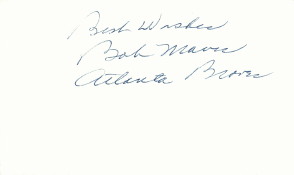 Best Wishes
Bob Mavis
Atlanta Braves